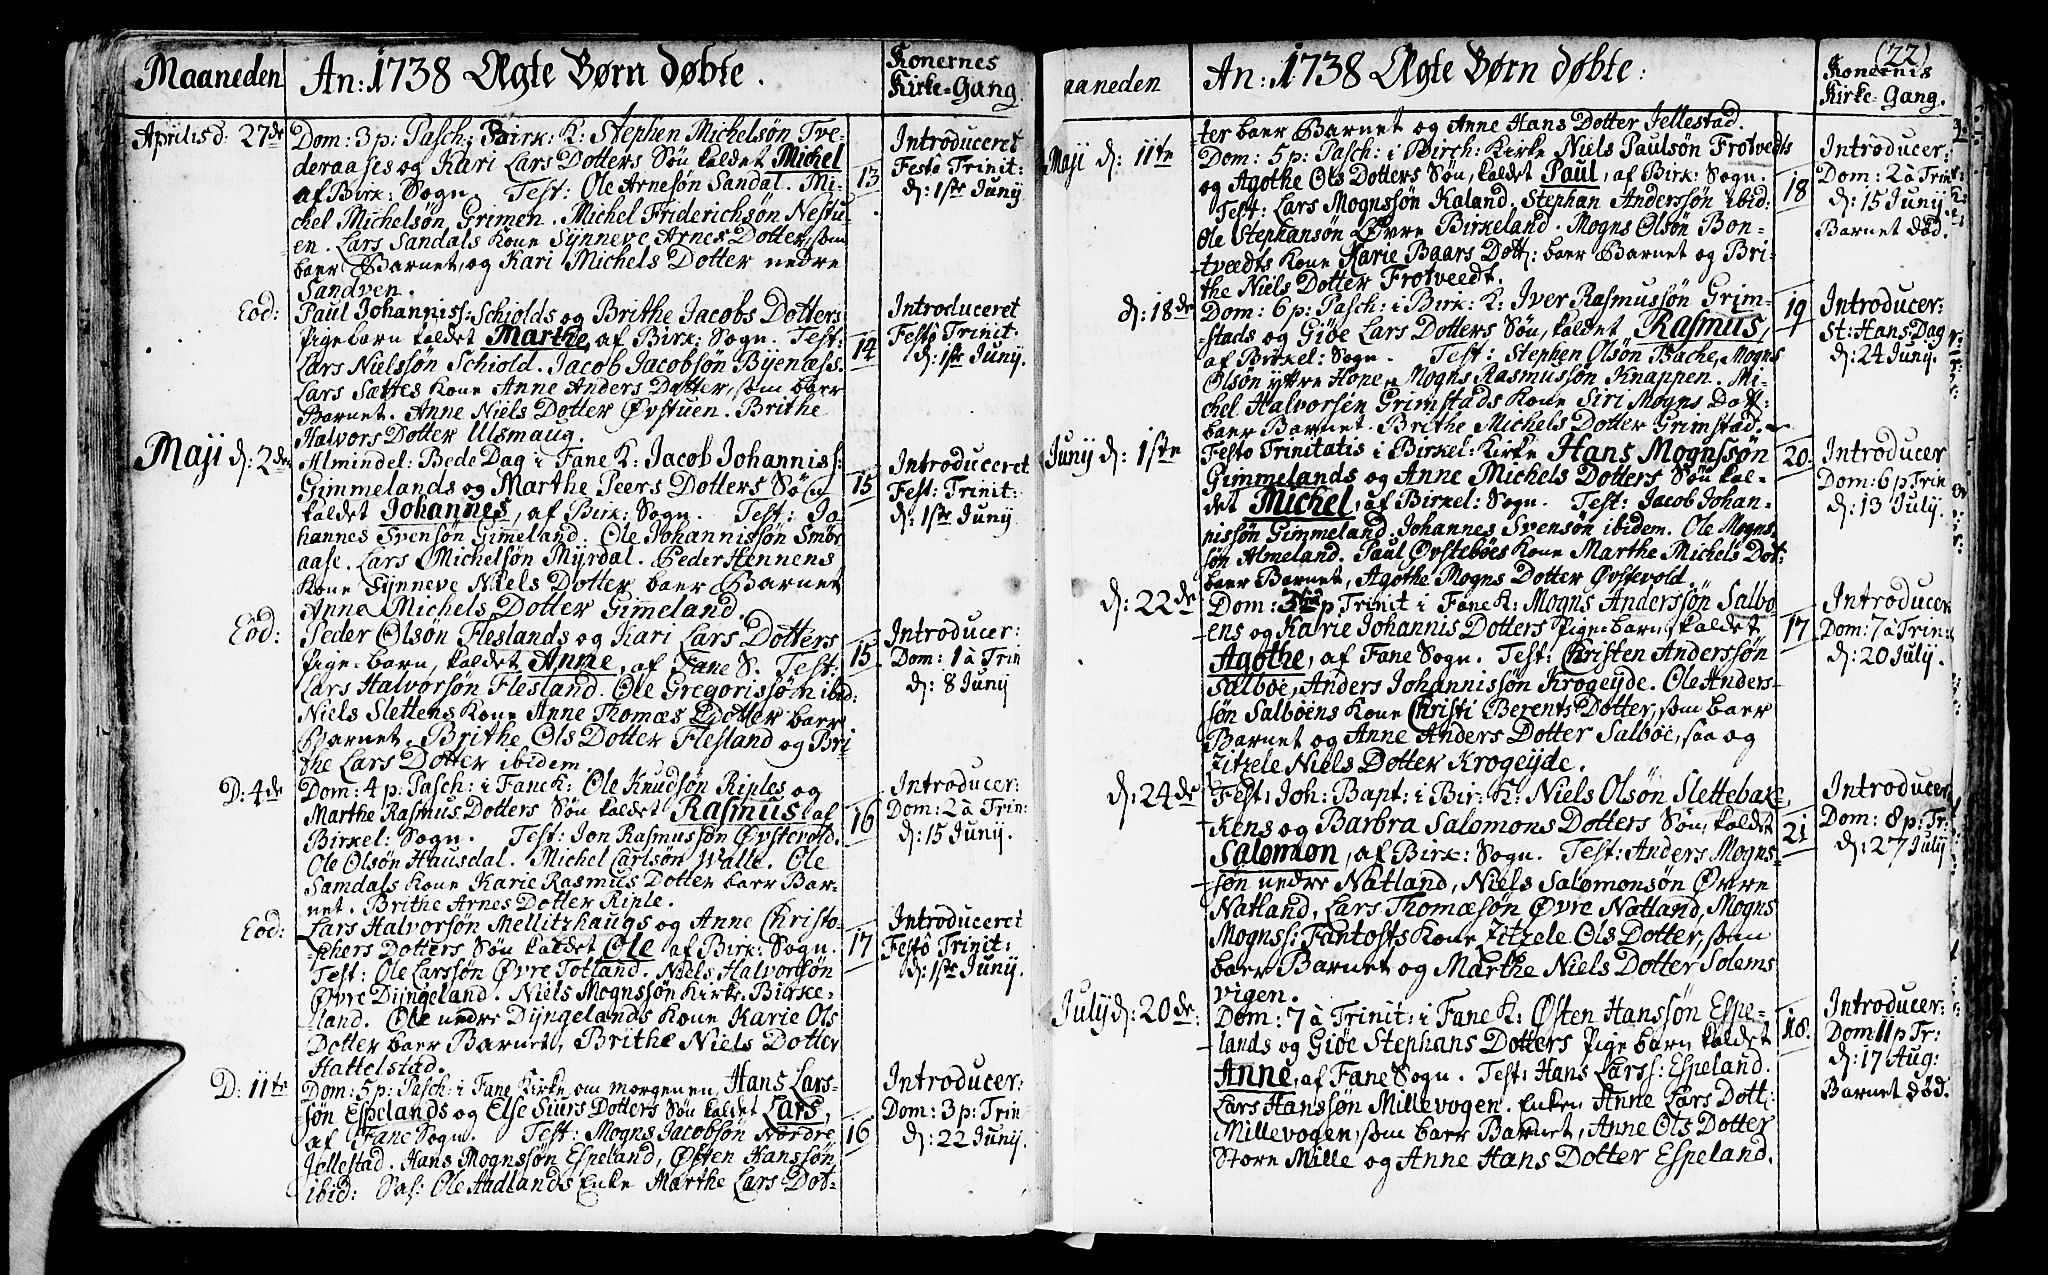 Maaneden
An: 1738 Ægte Børn døbte.
Konernes
Kirke-Gang.
Aprilis d: 27de
Dom: 3 p: Pasch: Birk: K: Stephen Michelsøn Tve-
deraases og Kari Lars Dotters Søn kaldet Michel
af Birk: Sogn. Test: Ole Arnesøn Sandal. Mi-
chel Michelsøn Grimen. Michel Friderichsøn Nestu-
en. Lars Sandals Kone Synneve Arnes Dotter, som
baer Barnet, og Kari Michels Dotter nedre
Sandven.
13
Introduceret
Festo Trinit:
d: 1ste Junij
Eod:
Paul Johanniss: Schiolds og Brithe Jacobs Dotters
Pigebarn kaldet Marthe, af Birk: Sogn. Test:
Lars Nielssøn Schiold. Jacob Jacobsøn Byenæss.
Lars Sættes Kone Anne Anders Dotter, som baer
Barnet. Anne Niels Dotter Øvstuen. Brithe
Halvors Dotter Ulsmaug.
14
Introduceret
Festo Trinit:
d: 1ste Junij.
Maji d: 2den
Almindel: Bede Dag i Fane K: Jacob Johanniss:
Gimmelands og Marthe Peers Dotters Søn
kaldet Johannes, af Birk: Sogn. Test: Jo-
hannes Svensøn Gimeland. Ole Johannissøn Smør
aase. Lars Michelsøn Myrdal. Peder Hennens
Kone Synneve Niels Dotter baer Barnet
Anne Michels Dotter Gimeland.
15
Introduceret
Fest: Trinit:
d: 1ste Junij
Eod:
Peder Olsøn Fleslands og Kari Lars Dotters
Pige-barn, kaldet Anne, af Fane S. Test:
Lars Halvorsøn Flesland. Ole Gregorissøn ibid:
Niels Slettens Kone Anne Thomæs Dotter baer
Barnet. Brithe Ols Dotter Flesland og Bri
the Lars Dotter ibidem.
15
Introducer:
Dom: 1 à Trin
d: 8 Junij
D: 4de
Dom: 4 p: Pasch: i Fane K: Ole Knudsøn Riples og
Marthe Rasmus Dotters Søn kaldet Rasmus af
Birkel: Sogn. Test: Jon Rasmussøn Øvstevold.
Ole Olsøn Hausdal. Michel Carlsøn Walle. Ole
Samdals Kone Karie Rasmus Dotter baer Bar-
net. Brithe Arnes Dotter Riple.
16
Introducer:
Dom: 2 à Trin:
d: 15 Junij.
Eod:
Lars Halvorsøn Mellitzhaugs og Anne Christo-
phers Dotters Søn kaldet Ole af Birk: Sogn.
Test: Ole Larssøn Øvre Totland. Niels Halvorssøn
Øvre Dyngeland. Niels Mognssøn Kirke-Birke-
land. Ole nedre Dyngelands Kone Karie Ols
Dotter baer Barnet, Brithe Niels Dotter
Hattelstad.
17
Introduceret
Festo Trinit:
d: 1ste Junij.
D: 11te
Dom: 5 p: Pasch: i Fane Kirke om morgenen, Hans Lars-
søn Espelands og Else Siurs Dotters Søn kaldet Lars,
af Fane Sogn. Test: Mogns Jacobsøn Nordre
Jellestad. Hans Mognssøn Espeland, Østen Hanssøn
ibid: Sal: Ole Hadlands Enke Marthe Lars Dot-
16
Introducer:
Dom: 3 p: Trin
d: 22 Junij.
(22)
aaneden
An: 1738 Ægte Børn døbte:
Konernis
Kirke-Gang.
ter baer Barnet og Anne Hans Dotter Jellestad.
Maji d: 11te
Dom: 5 p: Pasch: i Birch: Kirke Niels Paulsøn Frotvedts
og Agothe Ols Dotters Søn, kaldet Paul, af Birk: Sogn.
Test: Lars Mognssøn Kaland, Stephan Anderssøn ibid:
Ole Stephansøn Øvre Birkeland. Mogns Olsøn Bon-
tvædts Kone Karie Baars Dott: baer Barnet og Bri-
the Niels Dotter Frotveedt.
18
Introducer:
Dom: 2 à Trin
d: 15 Junij.
Barnet död.
d: 18de
Dom: 6 p: Pasch: i Birk: K: Iver Rasmussøn Grim-
stads og Giøe Lars Dotters Søn, kaldet Rasmus,
af Birkel: Sogn. Test: Stephen Olsøn Bache, Mogns
Olsøn yttre Hope, Mogns Rasmussøn Knappen. Mi-
chel Halvorsen Grimstads Kone Siri Mogns Dott:
baer Barnet. Brithe Michels Dotter Grimstad.
19
Introducer:
St: Hans Dag
d: 24 Junij.
Junij d: 1ste
Festo Trinitatis i Birkel: Kirke Hans Mognssøn
Gimmelands og Anne Michels Dotters Søn kal-
det Michel, af Birkel: Sogn. Test: Jacob Johan-
nissøn Gimmeland. Johannes Svensøn ibidem. Ole Mogns
søn Almeland. Paul Øvstebøes Kone Marthe Michels Dot:
baer Barnet, Agothe Mogns Dotter Øvstevold.
20
Introducer
Dom: 6 p Trin
d: 13 Julij.
d: 22de
Dom: 3tia p Trinit i Fane K: Mogns Anderssøn Salbo-
ens og Karie Johannis Dotters Pige-barn, kaldet
Agothe, af Fane Sogn. Test: Christen Anderssøn
Salboe, Anders Johannissøn Krogeyde. Ole Anders-
søn Salbøens Kone Christi Berents Dotter, som baer
Barnet og Anne Anders Dotter Salboe, saa og
Zitzele Niels Dotter Krogeyde.
17
Introducer
Dom: 7 à Trin:
d: 20 Julij.
d: 24de
Fest: Joh: Bapt: i Bir: K: Niels Olsøn Slettebak-
kens og Barbra Salomons Dotters Søn, kaldet
Salomon, af Birk: Sogn. Test: Anders Mogns-
søn nedre Natland, Niels Salomonsøn Øvre
Natland, Lars Thomæsøn Øvre Natland, Mogns
Mognss: Fantofts Kone Zitzele Ols Dotter, som
baer Barnet og Marthe Niels Dotter Solems
vigen.
21
Introducer
Dom: 8 p: Tr:
d: 27 Julij
Julij d: 20de
Dom: 7 à Trinit: i Fane K: Østen Hanssøn Espe-
lands og Giøe Stephans Dotters Pige barn kaldet
Anne, af Fane Sogn. Test: Hans Larss: Espeland.
Lars Hanssøn Millevogen. Enken Anne Lars Dott:
Millevogen, som baer Barnet, Anne Ols Dotter
Store Mille og Anne Hans Dotter Espeland.
18.
Introducer:
Dom 11 p Tr:
d: 17 Aug:
Barnet död.